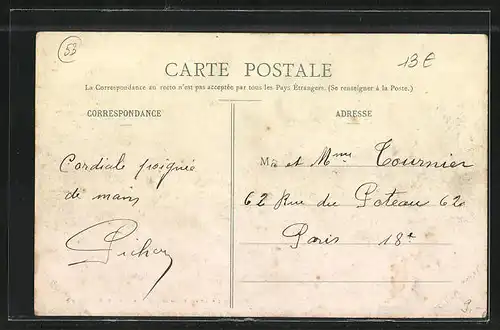 53
13€
CARTE POSTALE
La Correspondance au recto n'est pas acceptée par tous les Pays Étrangers. (Se renseigner à la Poste.)
CORRESPONDANCE
ADRESSE
Cordiale poignée
de mains
M. et Mme Tournier
62 Rue du Poteau 62
Paris 18e